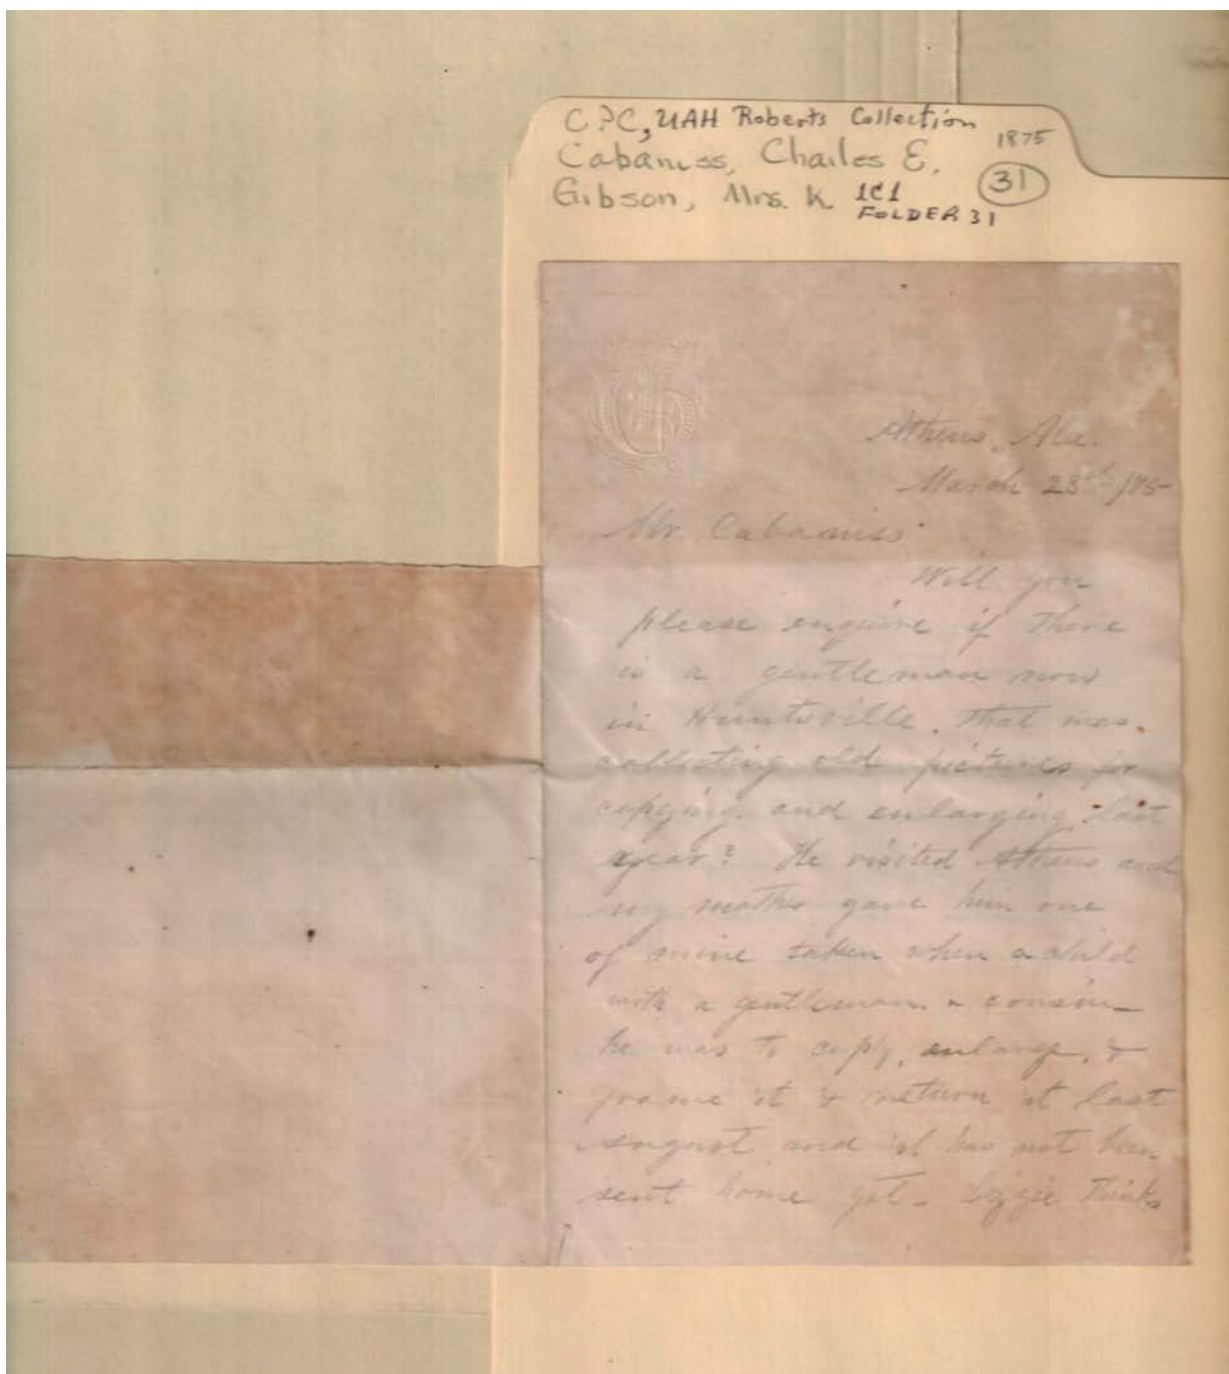 CPC, UAH Roberts Collection 1875
Cabaniss, Charles E. 31
Gibson, Mrs. K. 1C1
FOLDER 31
Athens, Ala.
March 23rd /75
Mr. Cabaniss
Will you
please enquire if there
is a gentleman now
in Huntsville, that was
collecting old pictures for
copying and enlarging last
year? He visited Athens and
my mother gave him one
of mine taken when a child
with a gentleman a cousin_
he was to copy, enlarge, &
frame it & return it last
August and it has not been
sent home yet_ Lizzie thinks